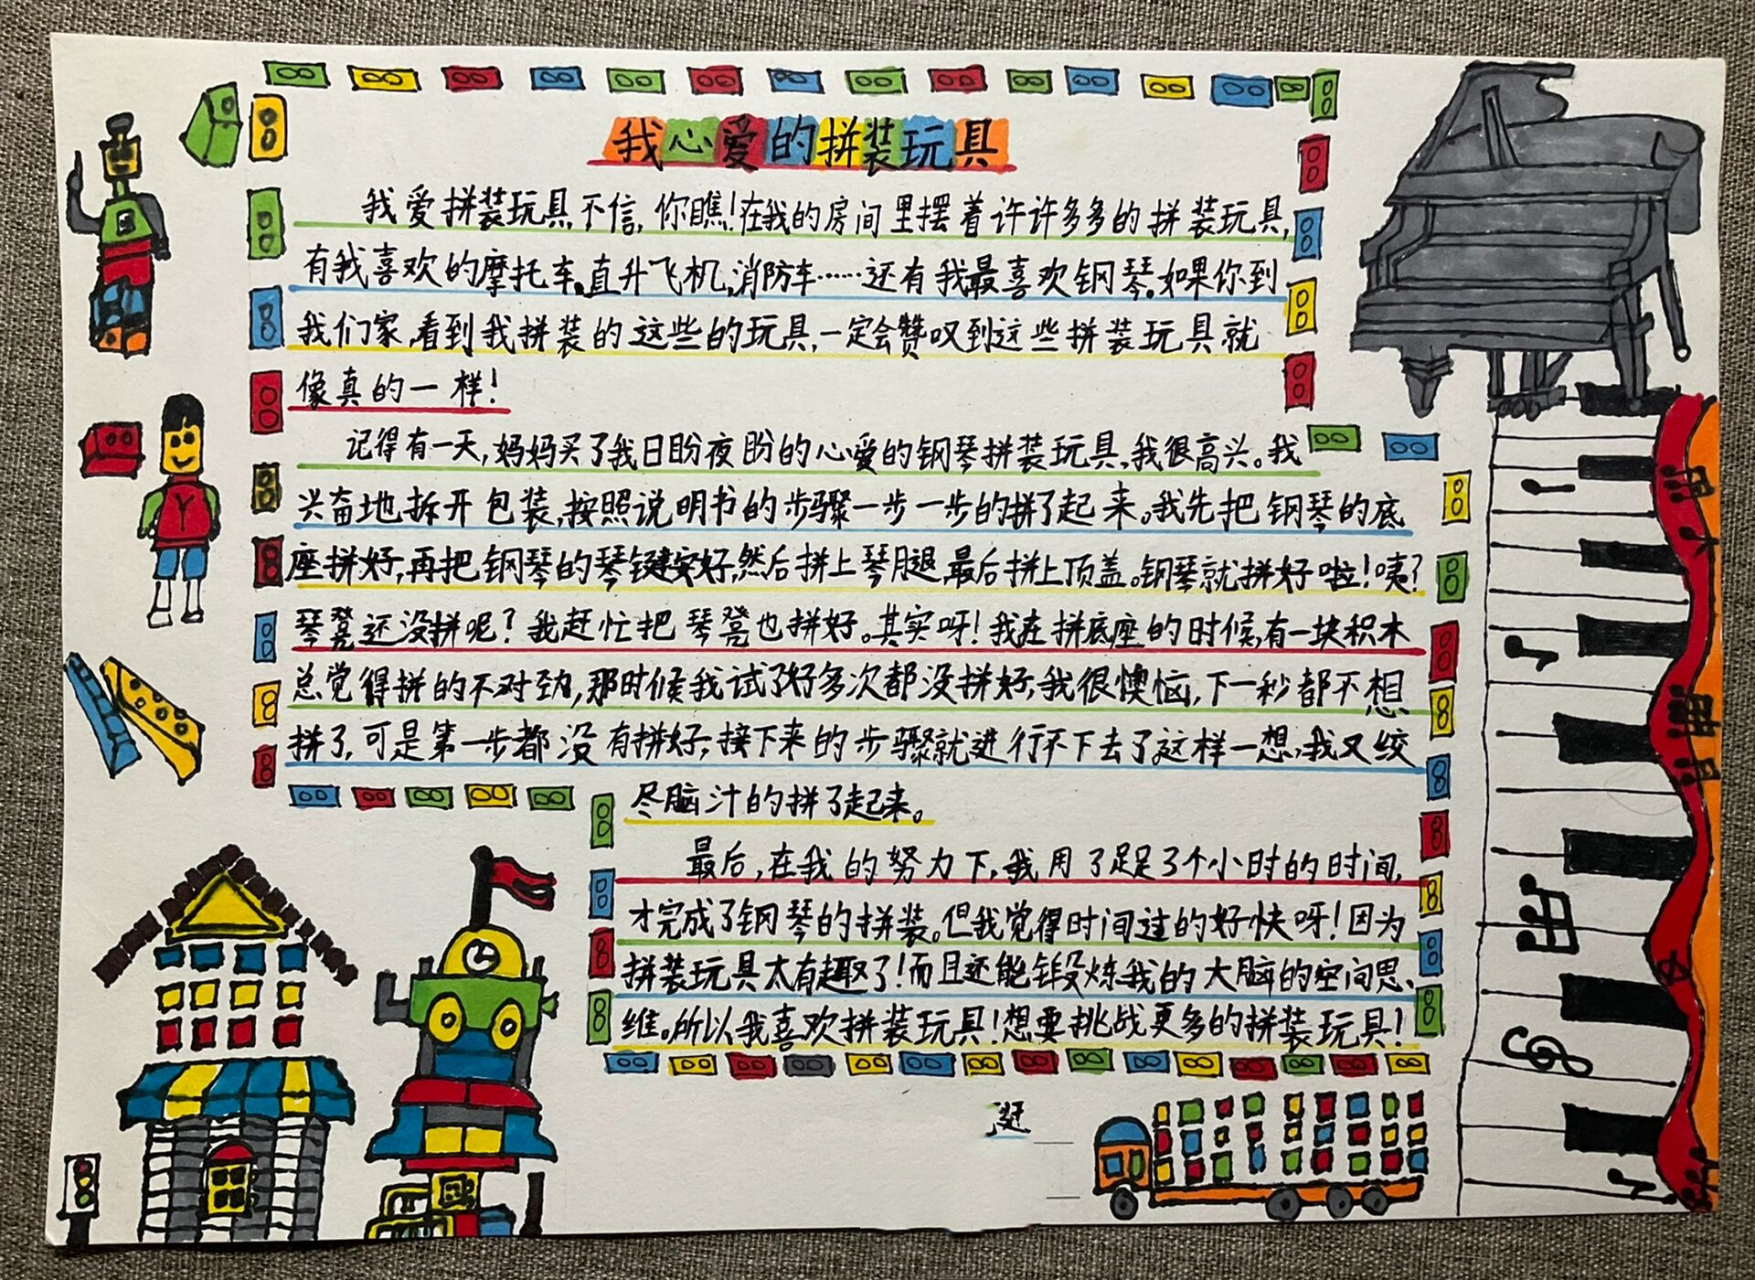 我心爱的拼装玩具
我爱拼装玩具,不信,你瞧!在我的房间里摆着许许多多的拼装玩具,
有我喜欢的摩托车,直升飞机,消防车……还有我最喜欢钢琴。如果你到
我们家,看到我拼装的这些的玩具,一定会赞叹到这些拼装玩具就
像真的一样!
记得有一天,妈妈买了我日盼夜盼的心爱的钢琴拼装玩具,我很高兴。我
兴奋地拆开包装,按照说明书的步骤一步一步的拼了起来。我先把钢琴的底
座拼好,再把钢琴的琴键安好,然后拼上琴腿,最后拼上顶盖。钢琴就拼好啦!咦?
琴凳还没拼呢?我赶忙把琴凳也拼好。其实呀!我在拼底座的时候,有一块积木
总觉得拼的不对劲,那时候我试了好多次都没拼好,我很懊恼,下一秒都不想
拼了,可是第一步都没有拼好,接下来的步骤就进行不下去了这样一想,我又绞
尽脑汁的拼了起来。
最后,在我的努力下,我用了足足3个小时的时间,
才完成了钢琴的拼装。但我觉得时间过的好快呀!因为
拼装玩具太有趣了!而且还能锻炼我的大脑的空间思、
维。所以我喜欢拼装玩具!想要挑战更多的拼装玩具!